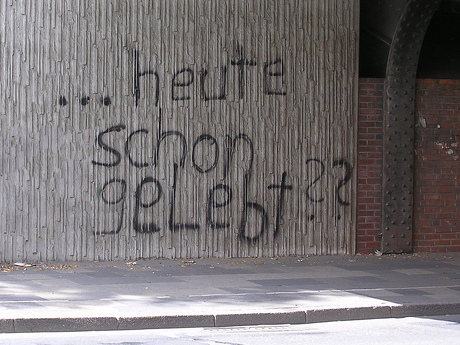 ... heute
schon
gelebt??